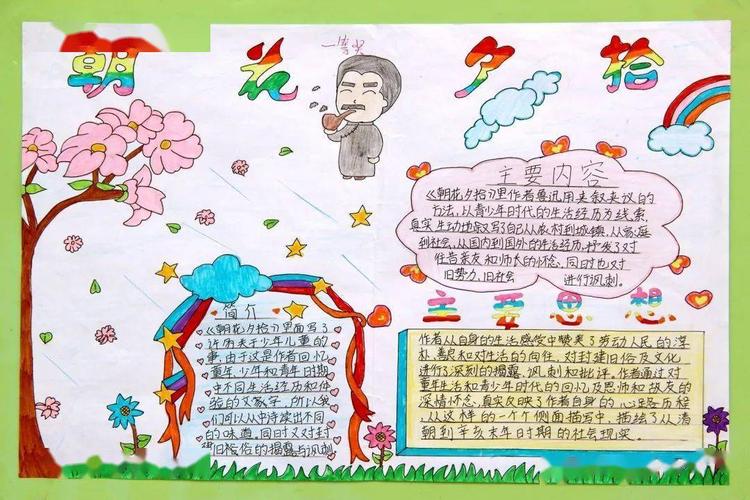 朝花夕拾
一等奖
主要内容
《朝花夕拾》里作者鲁迅用夹叙夹议的
方法，以青少年时代的生活经历为线索，
真实生动地叙写了自己从农村到城镇，从家庭
到社会，从国内到国外的生活经历，抒发了对
往昔亲友和师长的怀念，同时也对
旧势力，旧社会 进行讽刺。
主要思想
作者从自身的生活感受中赞美了劳动人民的淳
朴、善良和对生活的向往，对封建旧俗及文化
进行了深刻的揭露，讽刺和批评，作者通过对
童年生活和青少年时代的回忆及恩师和故友的
深情怀念，真实反映了作者自身的心路历程
，从这样的一个个侧面描写中，描绘了从清
朝到辛亥末年时期的社会现实。
简介
《朝花夕拾》里面写了
许有关于少年儿童的
事，由于这是作者回忆
童年，少年和青年时期
中不同生活经历和体
验的文教字，所以我
们可以从中读出不同
的味道，同时又对封
旧社俗的揭露与讽刺